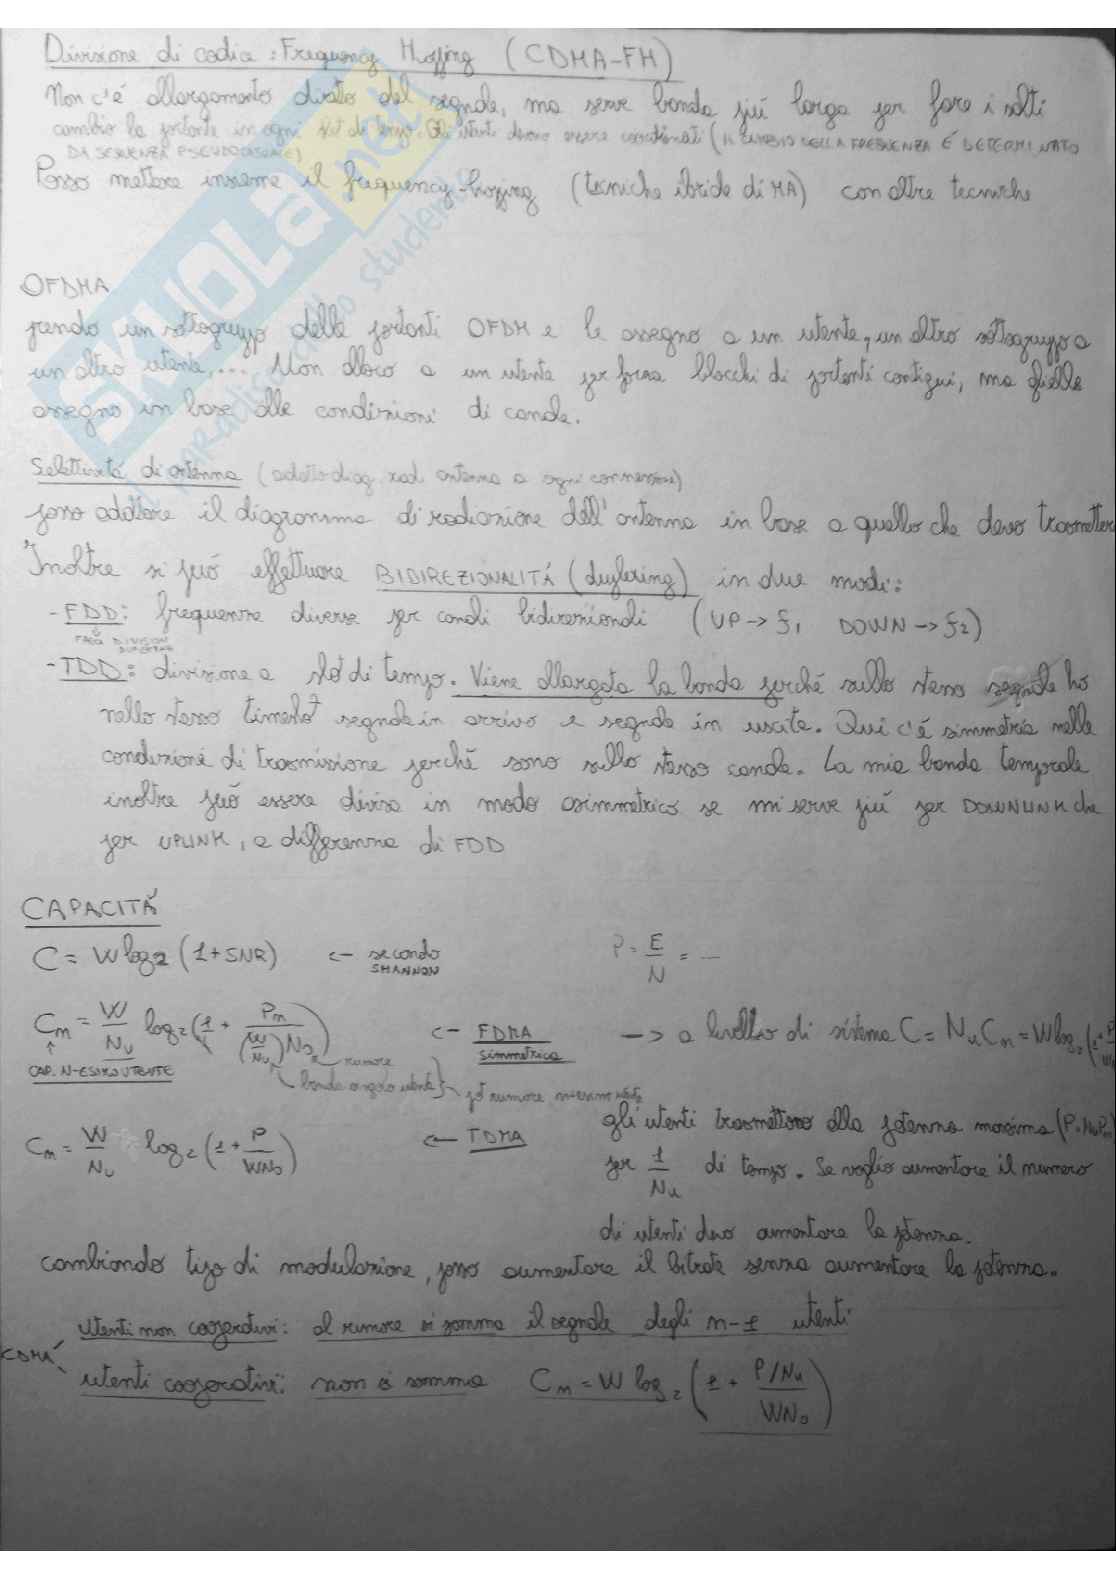 Divisione di codice : Frequency Hopping (CDMA-FH)
Non c'é allargamento diretto del segnale, ma serve banda piú larga per fare i salti
cambio la portante in ogni slot di tempo. Gli utenti devono essere coordinati (IL CAMBIO DELLA FREQUENZA É DETERMINATO
DA SEQUENZA PSEUDOCASUALE)
Posso mettere insieme il frequency-hopping (tecniche ibride di MA) con altre tecniche
OFDMA
prendo un sottogruppo delle portanti OFDM e le assegno a un utente, un altro sottogruppo a
un altro utente, ... Non alloco a un utente per forza blocchi di portanti contigui, ma glielle
assegno in base alle condizioni di canale.
Selettivitá di antenna (adatto diag. rad. antenna a ogni connessione)
posso adattare il diagramma di radiazione dell'antenna in base a quello che devo trasmettere
Inoltre si puó effettuare BIDIREZIONALITÁ (duplexing) in due modi:
- FDD: frequenze diverse per canali bidirezionali (UP -> f1 DOWN -> f2)
FREQ DIVISION
DUPLEXING
- TDD: divisione a slot di tempo. Viene allargata la banda perché sullo stesso segnale ho
nello stesso timeslot segnale in arrivo e segnale in uscita. Qui c'é simmetria nelle
condizioni di trasmissione perché sono sullo stesso canale. La mia banda temporale
inoltre puó essere divisa in modo asimmetrico se mi serve piú per DOWNLINK che
per UPLINK, a differenza di FDD
CAPACITÁ
C = W log2 (1+SNR) <- secondo SHANNON P = E/N = ...
Cn = W/Nu log2 (1 + Pn/((W/Nu) N0)) <- FDMA simmetrica -> a livello di sistema C = Nu Cn = W log2 (1+ P/WN
CAP. N-ESIMO UTENTE
rumore
banda singolo utente } pot rumore n-esimo utente
Cn = W/Nu log2 (1 + P/WN0) <- TDMA
gli utenti trasmettono alla potenza massima (P=NuPn)
per 1/Nu di tempo. Se voglio aumentare il numero
di utenti devo aumentare la potenza.
cambiando tipo di modulazione, posso aumentare il bitrate senza aumentare la potenza.
CDMA
utenti non cooperativi: al rumore si somma il segnale degli n-1 utenti
utenti cooperativi: non si somma Cn = W log2 (1 + (P/Nu)/WN0)
SKUOLA.net